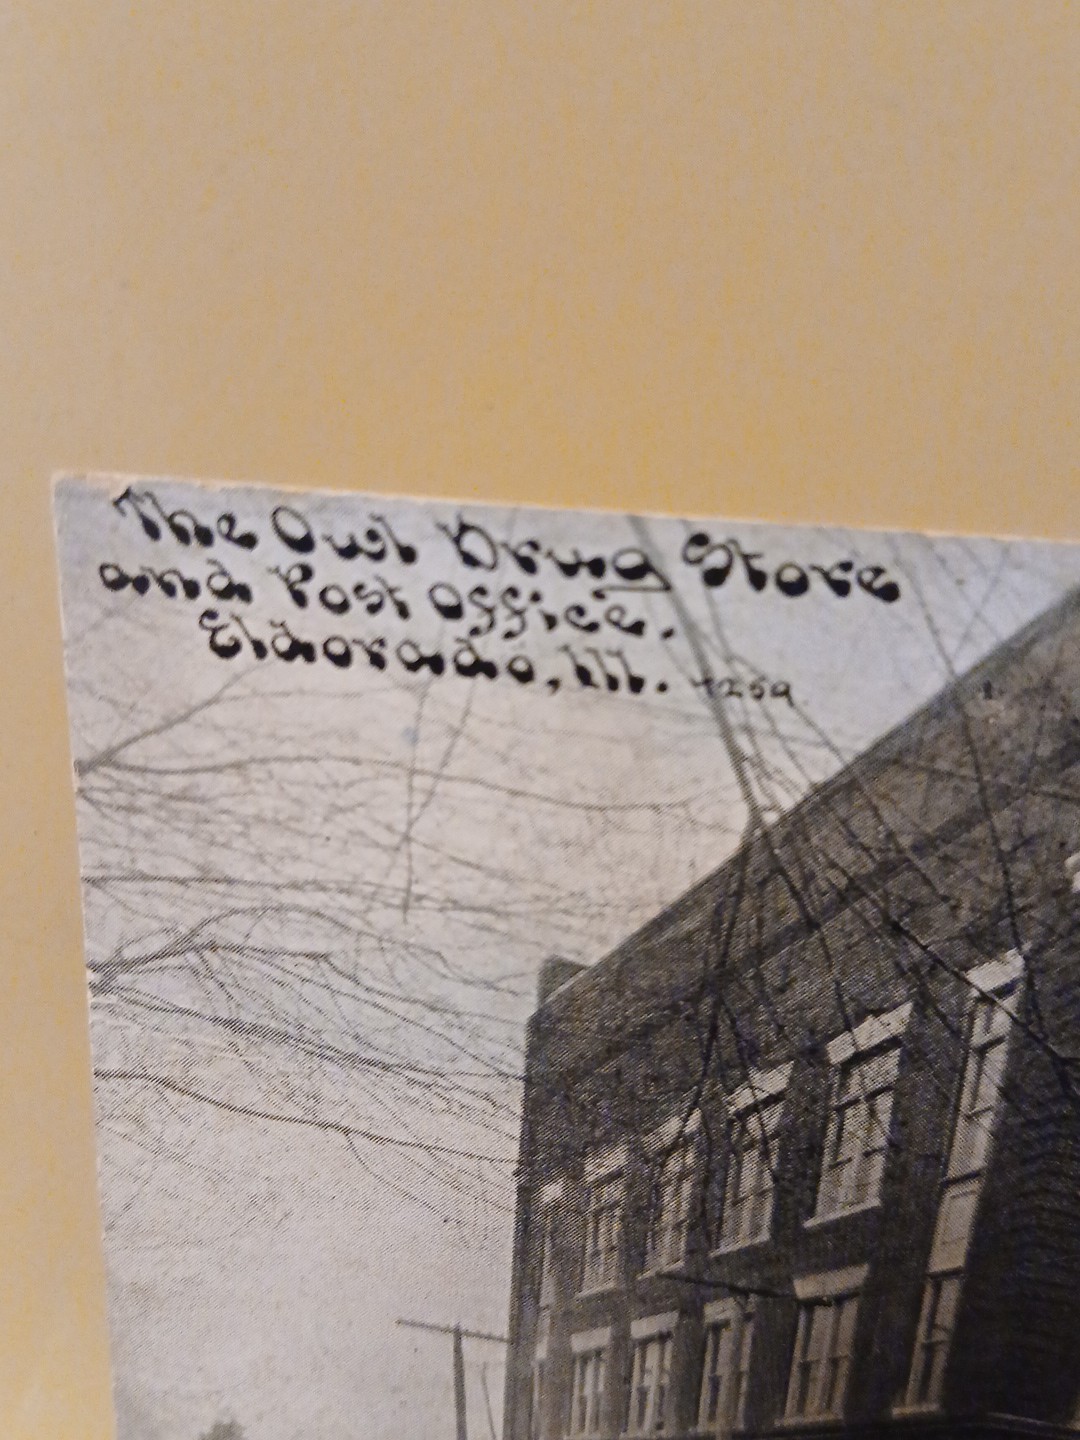 The Owl Drug Store
and Post Office.
Eldorado, Ill. 7259